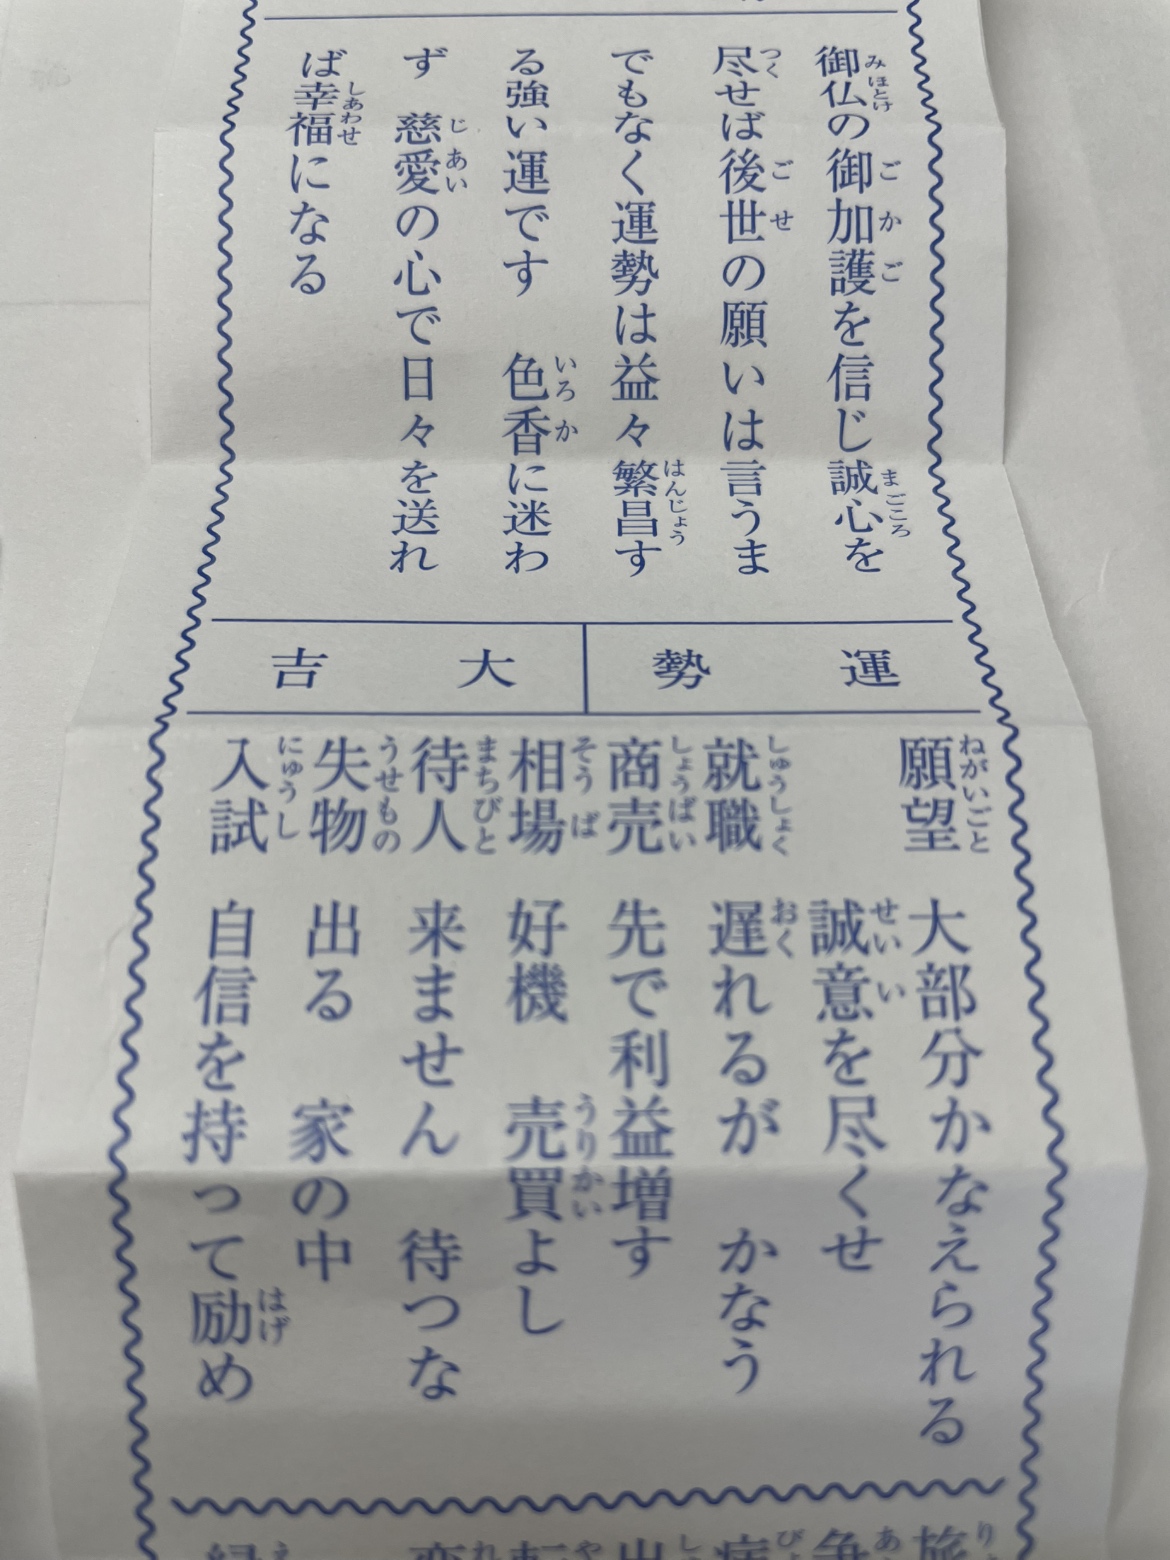 御仏の御加護を信じ誠心を
尽せば後世の願いは言うま
でもなく運勢は益々繁昌す
る強い運です　色香に迷わ
ず　慈愛の心で日々を送れ
ば幸福になる
運勢　大吉
願望　大部分かなえられる
誠意を尽くせ
就職　遅れるが　かなう
商売　先で利益増す
相場　好機　売買よし
待人　来ません　待つな
失物　出る　家の中
入試　自信を持って励め